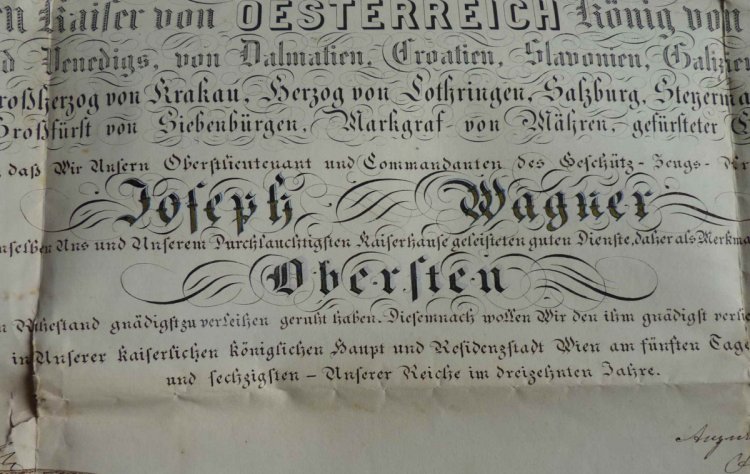 Kaiser von OESTERREICH König von
Venedigs, von Dalmatien, Croatien, Slavonien, Galizien
Großherzog von Krakau, Herzog von Lothringen, Salzburg, Steyerma
Großfürst von Siebenbürgen, Markgraf von Mähren, gefürsteter
daß Wir Unsern Oberstlieutenant und Commandanten des Geschütz-Zeugs-
Joseph Wagner
mselben Uns und Unserem Durchlauchtigsten Kaiserhause geleisteten guten Dienste, daher als Merkma
Obersten
Ruhestand gnädigst zu verleihen geruht haben. Diesemnach wollen Wir den ihm gnädigst verlie
in Unserer kaiserlichen königlichen Haupt und Residenzstadt Wien am fünften Tage
und sechzigsten – Unserer Reiche im dreizehnten Jahre.